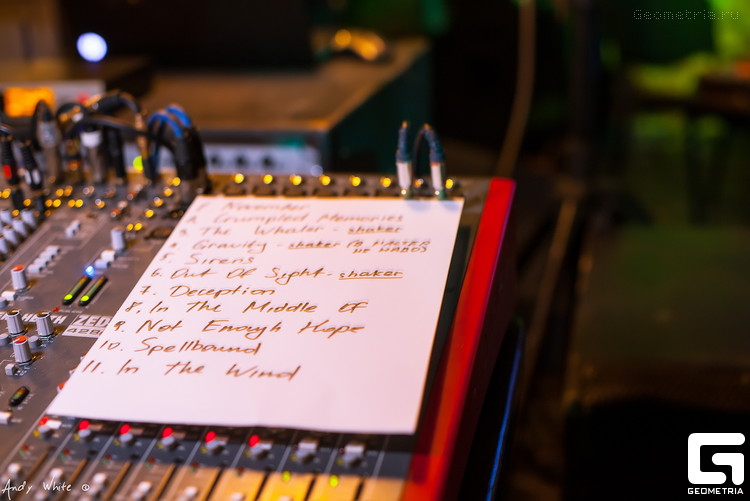 Geometria.ru
1. November
2. Crumpled Memories
3. The Whaler - shaker
4. Gravity - shaker
5. Sirens
6. Out Of Sight - shaker
7. Deception
8. In The Middle Of
9. Not Enough Hope
10. Spellbound
11. In The Wind
ZED
Andy White ©
GEOMETRIA